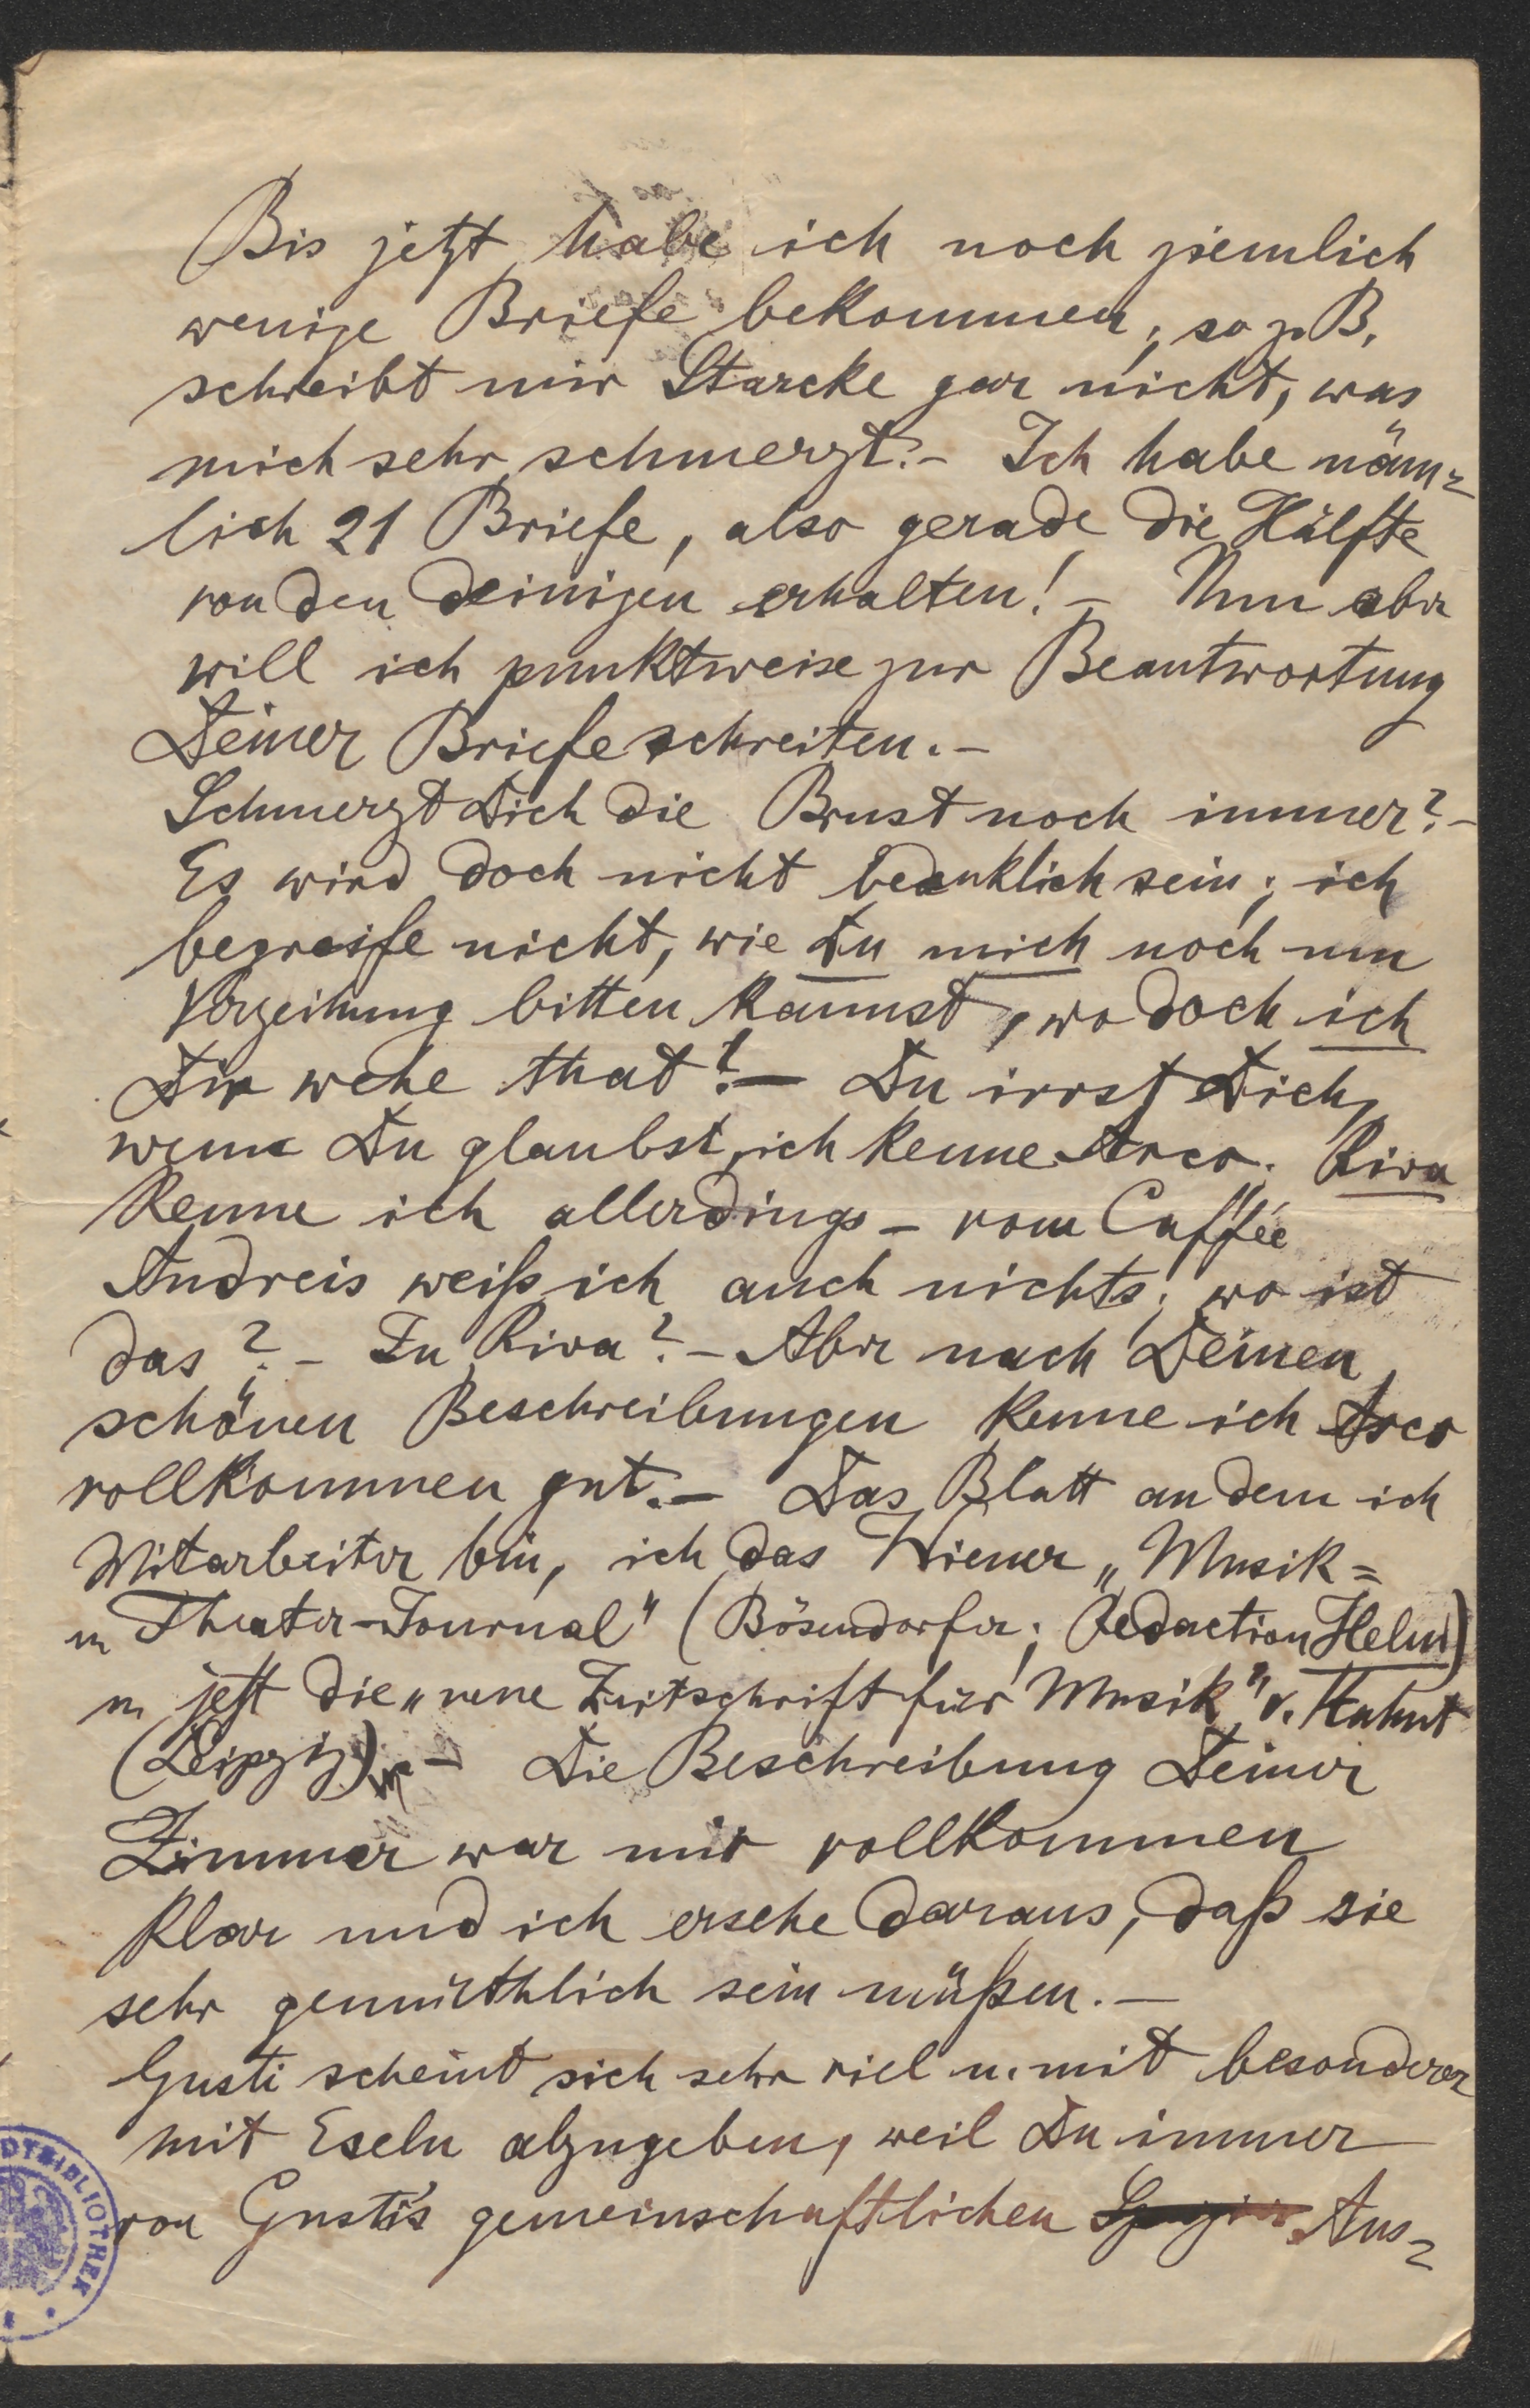 Bis jetzt habe ich noch ziemlich
wenige Briefe bekommen; so z. B.
schreibt mir Starcke gar nicht, was
mich sehr schmerzt.– Ich habe näm=
lich 21 Briefe, also gerade die Hälfte
von den deinigen erhalten! – Nun aber
will ich punktweise zur Beantwortung
Deiner Briefe schreiten.–
Schmerzt Dich die Brust noch immer? –
Es wird doch nicht bedenklich sein; ich
begreife nicht, wie Du mich noch um
Verzeihung bitten kannst, wo doch ich
Dir wehe that? – Du irrst Dich,
wenn Du glaubst, ich kenne Arco. Riva
kenne ich allerdings – vom Caffée
Andreis weiß ich auch nichts; wo ist
das? – In Riva? – Aber nach Deinen
schönen Beschreibungen kenne ich Arco
vollkommen gut. – Das Blatt an dem ich
Mitarbeiter bin, ich das Wiener „Musik=
u Theater-Journal" (Bösendorfer; Redaction Helm)
u. jetzt die „neue Zeitschrift für Musik" v. Kahnt
(Leipzig) – Die Beschreibung Deiner
Zimmer war mir vollkommen
klar und ich ersehe daraus, daß sie
sehr gemüthlich sein müßen. –
Gusti scheint sich sehr viel u. mit besonderer
mit Eseln abzugeben, weil Du immer
von Gusti's gemeinschaftlichen Aus=
DTBIBLIOTHEK